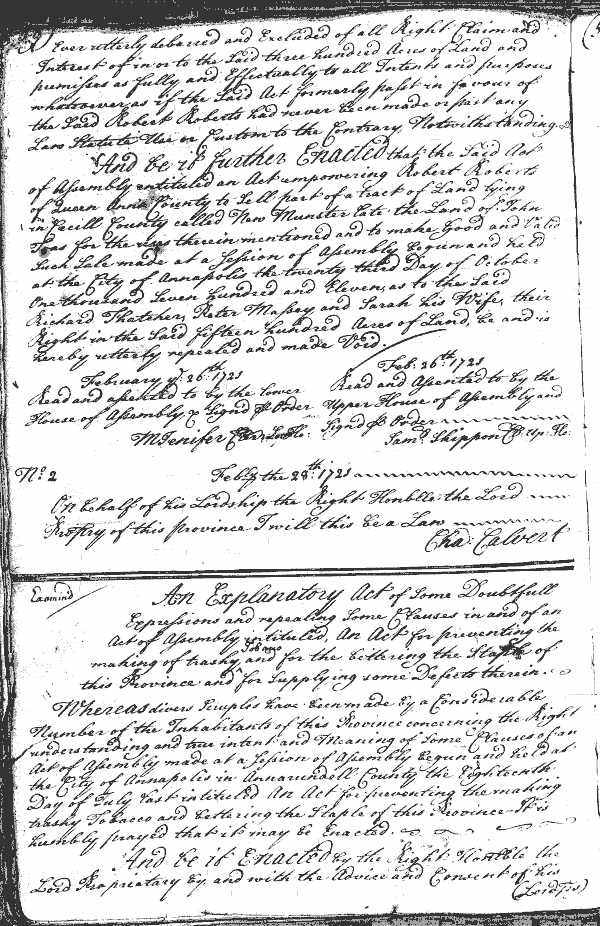 Ever utterly debarred and Excluded of all Right Claim and
Interest of in or to the Said three hundred Acres of Land and
premisses as fully and Effectually to all Intents and purposes
whatsoever, as if the Said Act formerly past in favour of
the Said Robert Roberts had never been made or past any
Law Statute Use or Custom to the Contrary Notwithstanding
And be it further Enacted that the Said Act
of Assembly entituled an Act empowering Robert Roberts
of Queen Anns County to Sell part of a tract of Land lying
in Cecill County called New Munster late the Land of John
Toas for the uses therein mentioned and to make Good and Valid
Such Sale made at a Session of Assembly begun and held
at the City of Annapolis the twenty third Day of October
One thousand Seven hundred and Eleven, as to the Said
Richard Thatcher, Peter Massey, and Sarah his Wife, their
Right in the Said fifteen hundred Acres of Land, be and is
hereby utterly repealed and made Void.
February ye. 26th. 1721
Read and assented to by the lower
House of Assembly, & Signd p Order
MJenifer Cl Lo: Ho:
Feb: 26th. 1721
Read and Assented to by the
Upper House of Assembly and
Signd p Order
Sam: Skippon Cl Up: Ho:
No. 2
Feb:ry the 28th: 1721
On behalf of his Lordship the Right Honble the Lord
Propry of this province I will this be a Law
Cha: Calvert
Examind
An Explanatory Act of Some Doubtfull
Expressions and repealing Some Clauses in and of an
Act of Assembly intituled, An Act for preventing the
making of trashy Tobacco and for the bettering the Staple of
this Province and for Supplying some Defects therein.
Whereas divers Scruples have been made by a Considerable
Number of the Inhabitants of this Province concerning the Right
understanding and true intent and Meaning of Some Clauses of an
Act of Assembly made at a Session of Assembly begun and held at
the City of Annapolis in Annarundell County the Eighteenth
Day of July last intituled An Act for preventing the making
trashy Tobacco and bettering the Staple of this Province It is
humbly prayed that it may be Enacted
And be it Enacted by the Right Honble the
Lord Proprietary by and with the Advice and Consent of his
(Lordps)